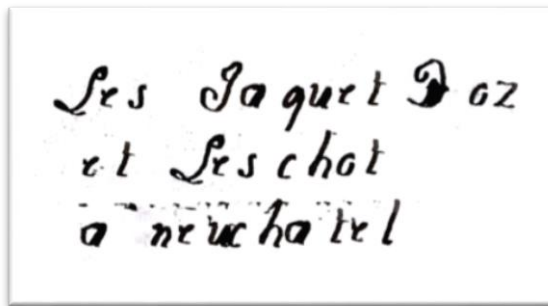 Les Jaquet Doz
et Leschot
a neuchatel